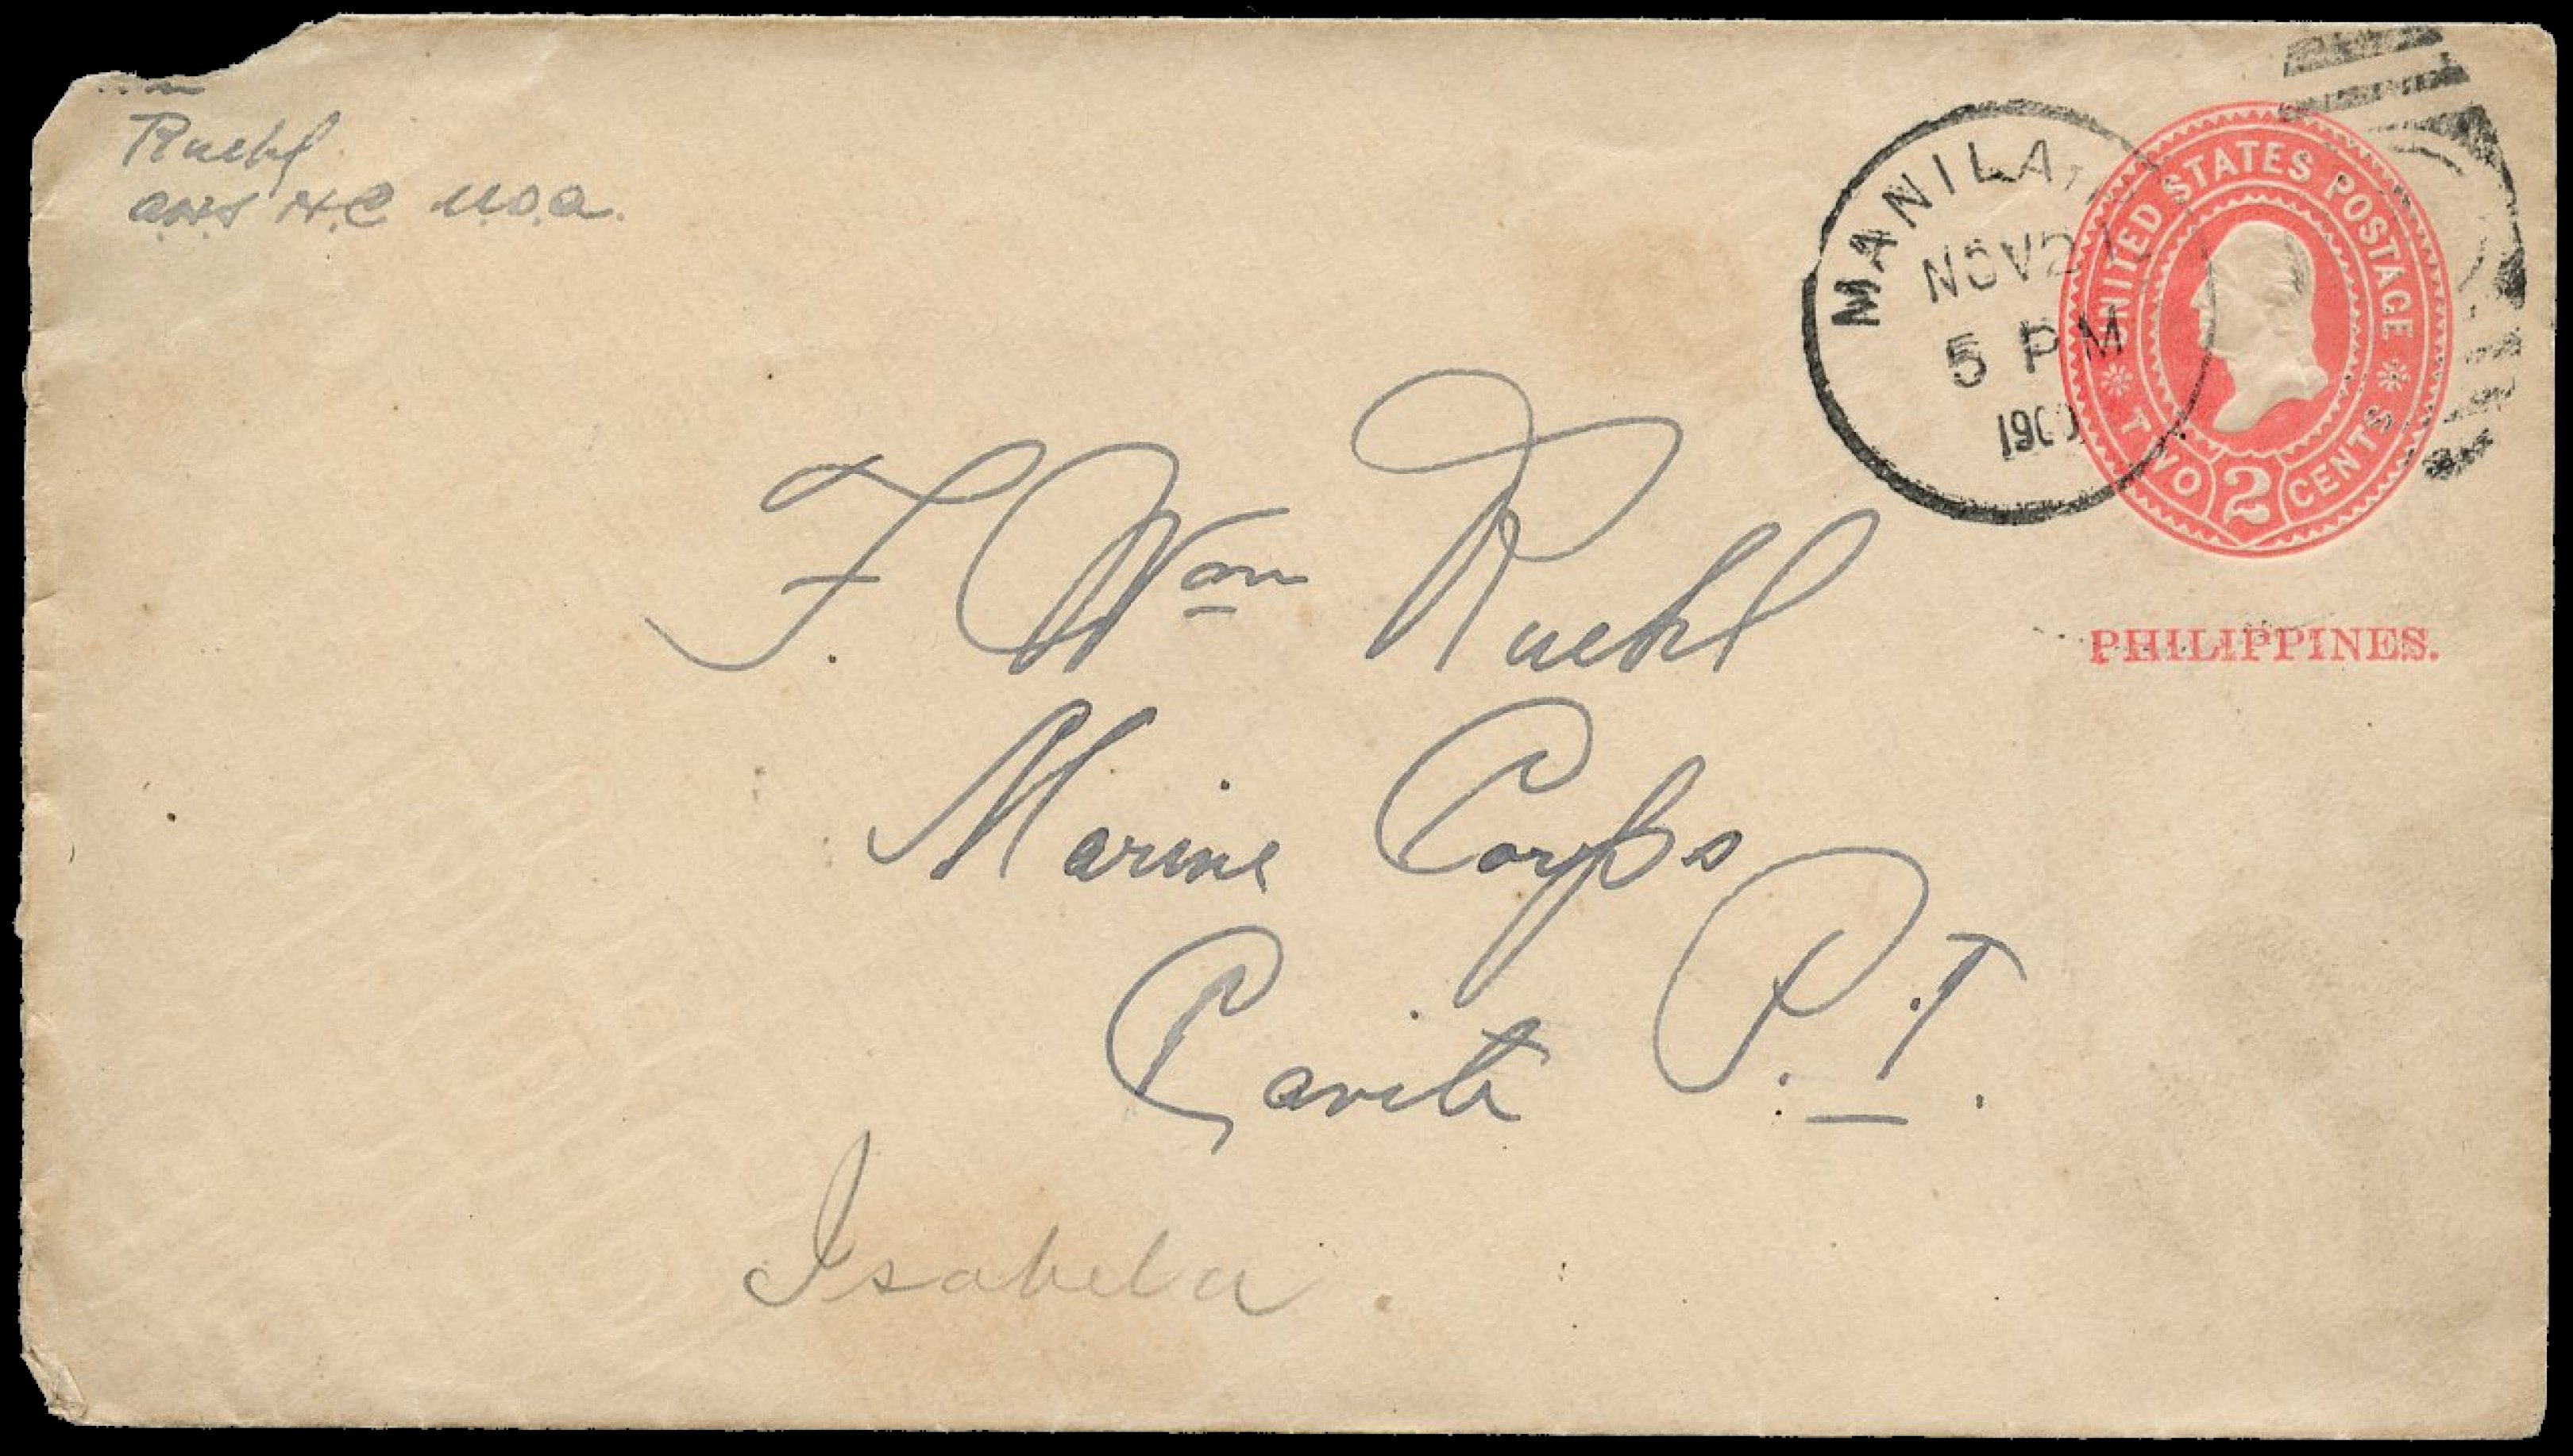 Ruehl
H.C U.S.A.
MANILA,
NOV 2
5 PM
190
UNITED STATES POSTAGE
TWO 2 CENTS
PHILIPPINES.
F. Wm Ruehl
Marine Corps
Cavite P.I.
Isabela